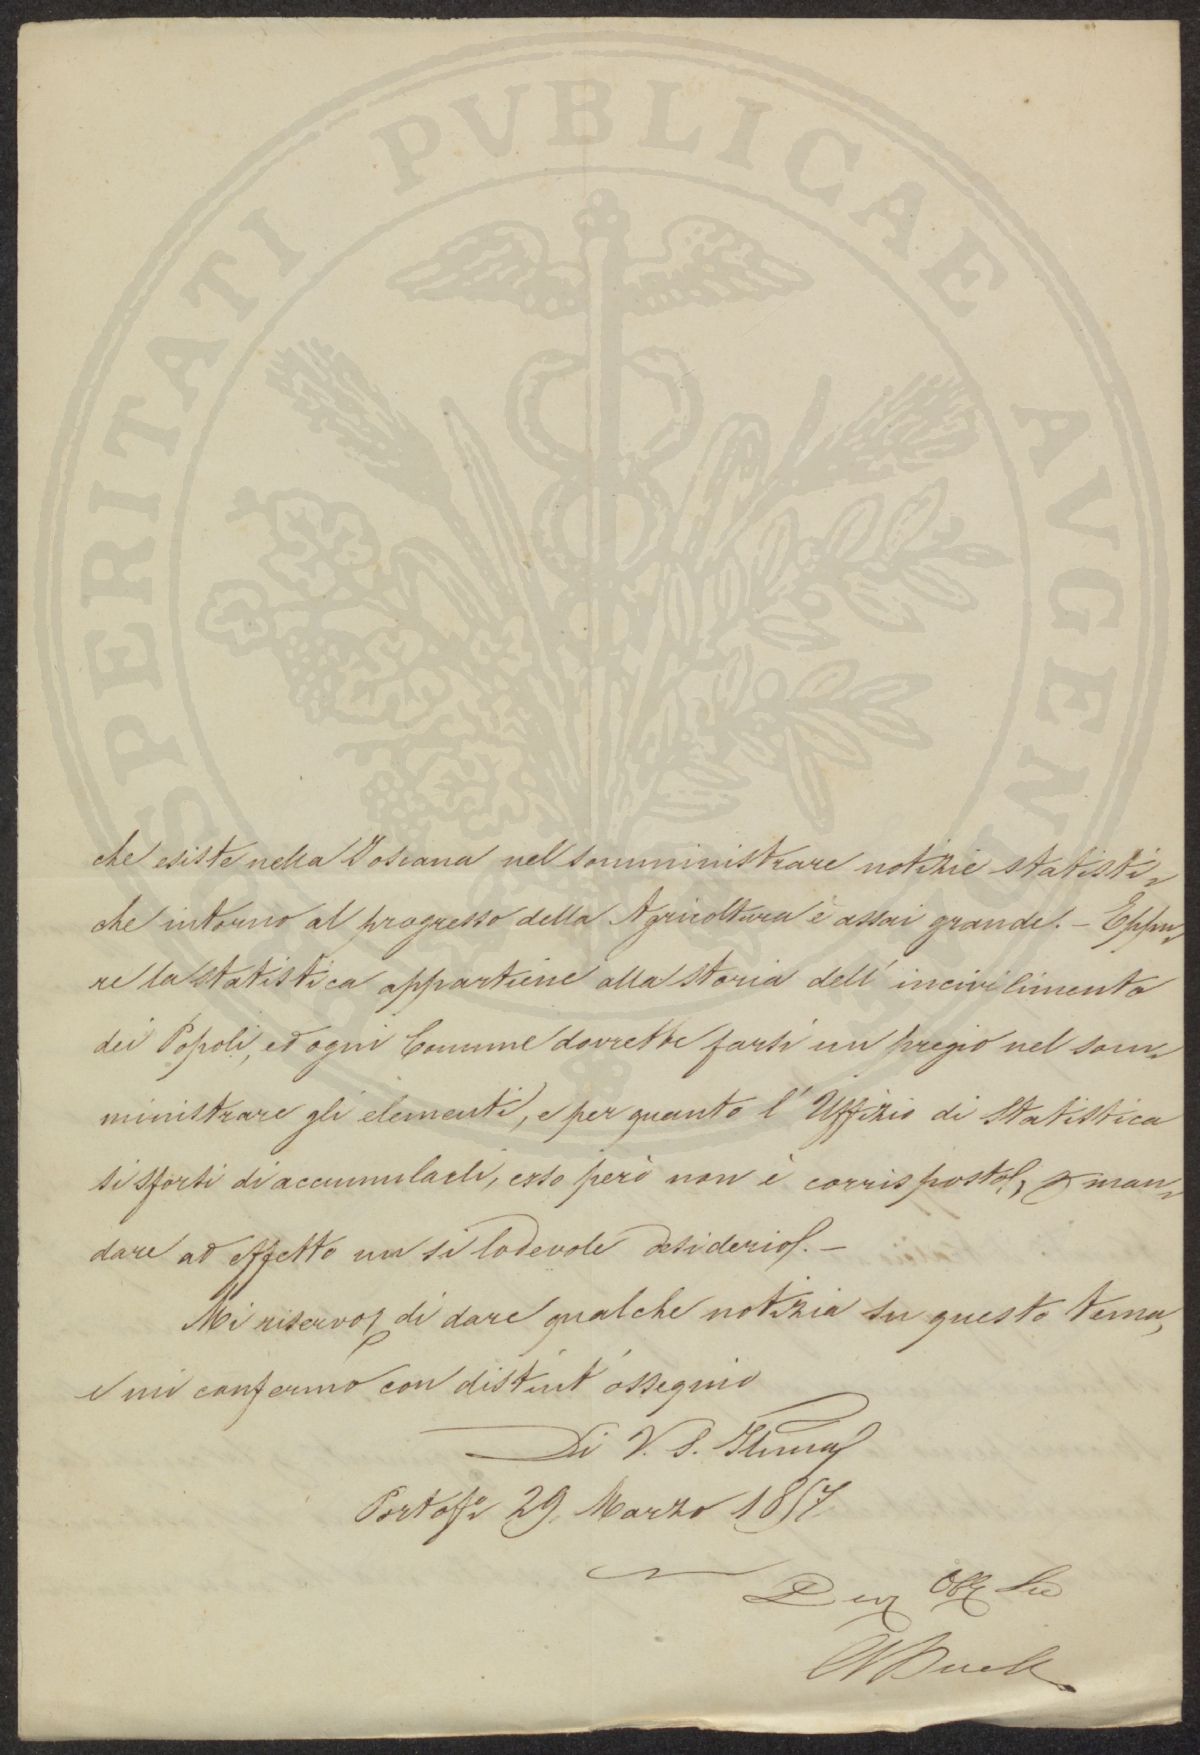 PROSPERITATI PUBLICAE AUGENDAE
che esiste nella Toscana nel somministrare notizie statisti-
che intorno al progresso della Agricoltura è assai grande. - Eppu-
re la statistica appartiene alla storia dell' incivilimento
dei Popoli, ed ogni Comune dovrebbe farsi un pregio nel som-
ministrare gli elementi, e per quanto l' Uffizio di Statistica
si sforsi di accumularli, esso però non è corrisposto, a man-
dare ad effetto un si lodevole desiderio. -
Mi riservo di dare qualche notizia su questo tema,
e mi confermo con distint' ossequio
Di V. S. Illma
Portofo 29. Marzo 1857.
Dev Obb